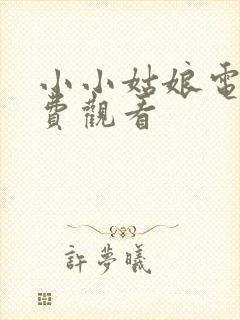 小小姑娘電
費觀看
許夢曦